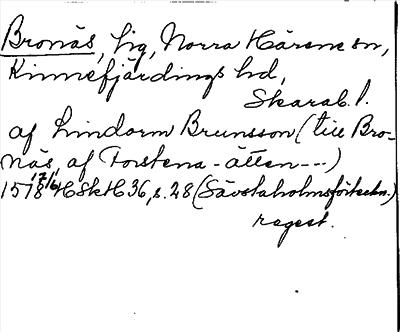 Bronäs, lig, Norra Härene sn,
Kinnefjärdings hd,
Skarab. l.
af Lindorm Brunsson (till Bro-
näs, af Forstena-ätten ---)
1578 17/6 HSkH 36, s. 28 (Säfstaholmsförteckn.)
regest.